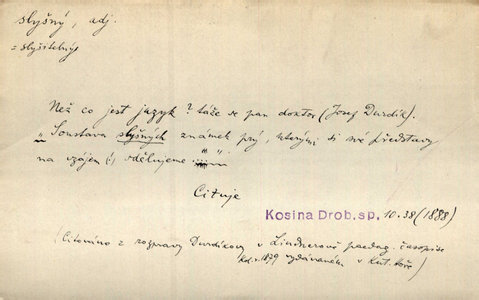 slyšný, adj.
= slyšitelný
Než co jest jazyk? táže se pan doktor (Josef Durdík).
„Soustava slyšných známek prý, kterými si své představy
na vzájem (!) sdělujeme ...."
Cituje
Kosina Drob. sp. 10.38 (1888)
(Citováno z rozpravy Durdíkovy v Lindnerově paedag. časopise
Kd. r. 1879 vydávaném v Kut. Hoře)